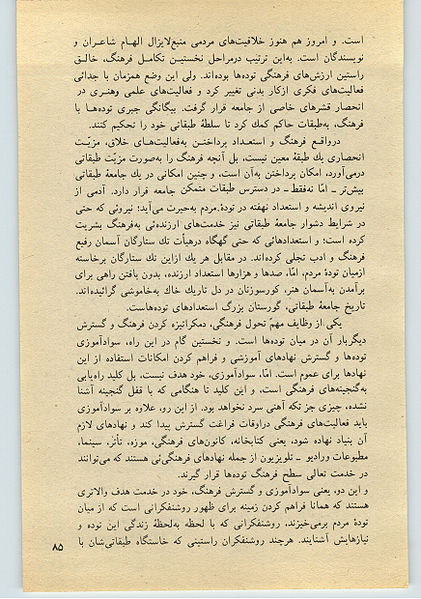 است. و امروز هم هنوز خلاقیت‌های مردمی منبع‌لایزال الهام شاعران و
نویسندگان است. به‌این ترتیب درمراحل نخستین تکامل فرهنگ، خالق
راستین ارزش‌های فرهنگی توده‌ها بوده‌اند. ولی این وضع همزمان با جدائی
فعالیت‌های فکری ازکار بدنی تغییر کرد و فعالیت‌های علمی وهنری در
انحصار قشرهای خاصی از جامعه قرار گرفت. بیگانگی جبری توده‌ها با
فرهنگ، به‌طبقات حاکم کمك کرد تا سلطهٔ طبقاتی خود را تحکیم کنند.
درواقع فرهنگ و استعـداد پرداختـن به‌فعالیت‌های خلاق، مزیّت
انحصاری یك طبقهٔ معین نیست، بل آنچه فرهنگ را به‌صورت مزیّت طبقاتی
درمی‌آورد، امکان پرداختن به‌آن است، و چنین امکانی در یك جامعهٔ طبقاتی
بیش‌تر ـ امّا نه‌فقط ـ در دسترس طبقات متمکن جامعه قرار دارد. آدمی از
نیروی اندیشه و استعداد نهفته در تودهٔ مردم به‌حیرت می‌آید؛ نیروئی که حتی
در شرایط دشوار جامعهٔ طبقاتی نیز خدمت‌های ارزنده‌ئی به‌فرهنگ بشریت
کرده است؛ و استعدادهائی که حتی گهگاه درهیأت تك ستارگان آسمان رفیع
فرهنگ و ادب تجلی کرده‌اند. در مقابل هر یك ازاین تك ستارگان برخاسته
ازمیان تودهٔ مردم، امّا، صدها و هزارها استعداد ارزنده، بدون یافتن راهی برای
برآمدن به‌آسمان هنر، کورسوزنان در دل تاریك خاك به‌خاموشی گرائیده‌اند.
تاریخ جامعهٔ طبقاتی، گورستان بزرگ استعدادهای توده‌هاست.
یکی از وظایف مهمّ تحول فرهنگی، دمکراتیزه کردن فرهنگ و گسترش
دیگربار آن در میان توده‌ها است. و نخستین گام در این راه، سوادآموزی
توده‌ها و گسترش نهادهای آموزشی و فراهم کردن امکانات استفاده از این
نهادها برای عموم است. امّا، سوادآموزی، خود هدف نیست، بل کلید راه‌یابی
به‌گنجینه‌های فرهنگی است، و این کلید تا هنگامی که با قفل گنجینه آشنا
نشده، چیزی جز تکه آهنی سرد نخواهد بود. از این رو، علاوه بر سوادآموزی
باید فعالیت‌های فرهنگی دراوقات فراغت گسترش پیدا کند و نهادهای لازم
آن بنیاد نهاده شود، یعنی کتابخانه، کانون‌های فرهنگی، موزه، تأتر، سینما،
مطبوعات ورادیو ـ تلویزیون از جمله نهادهای فرهنگی‌ئی هستند که می‌توانند
در خدمت تعالی سطح فرهنگ توده‌ها قرار گیرند.
و این دو، یعنی سوادآموزی و گسترش فرهنگ، خود در خدمت هدف والاتری
هستند که همانا فراهم کردن زمینه برای ظهور روشنفکرانی است که از میان
تودهٔ مردم برمی‌خیزند، روشنفکرانی که با لحظه به‌لحظهٔ زندگی این توده و
نیازهایش آشنایند. هرچند روشنفکران راستینی که خاستگاه طبقاتی‌شان با
۸۵